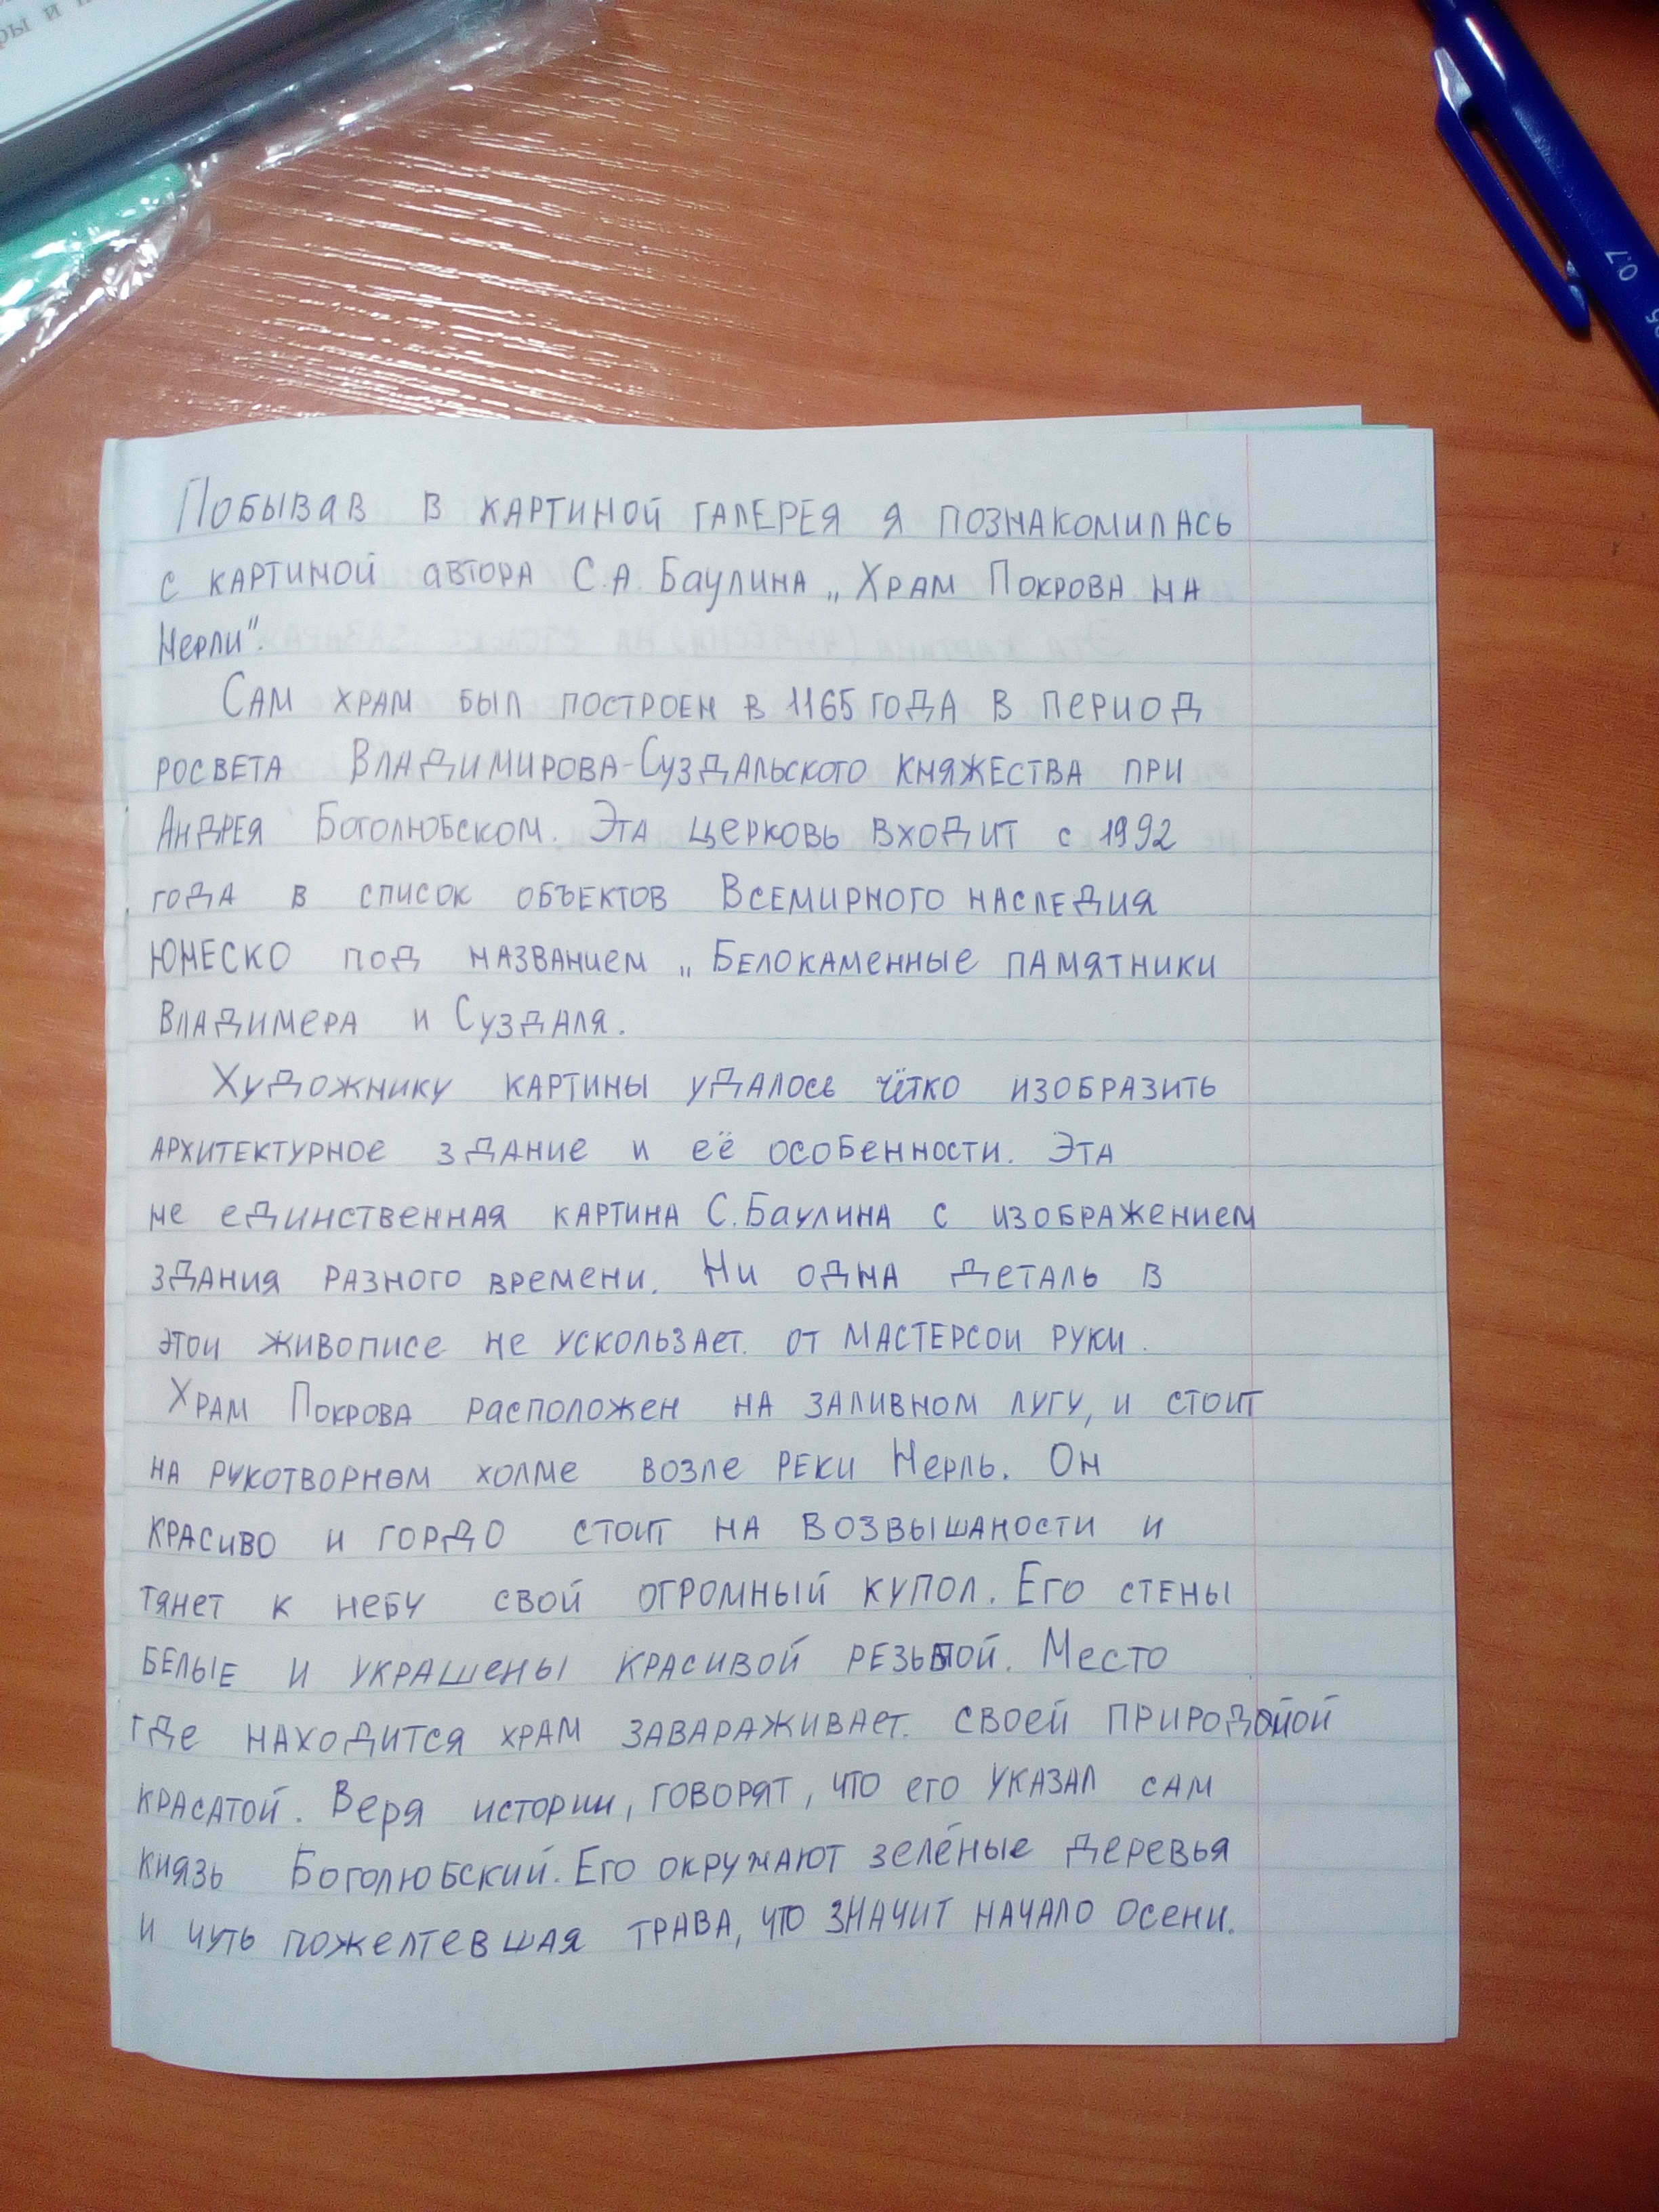 ры и
0.7
Побывав в картиной галерея я познакомилась
с картиной автора С.А. Баулина „Храм Покрова на
Нерли".
Сам храм был построен в 1165 года в период
росвета Владимирова-Суздальского княжества при
Андрея Боголюбском. Эта церковь входит с 1992
года в список объектов Всемирного наследия
ЮНЕСКО под названием „Белокаменные памятники
Владимера и Суздаля.
Художнику картины удалось чётко изобразить
архитектурное здание и её особенности. Эта
не единственная картина С. Баулина с изображением
здания разного времени. Ни одна деталь в
этои живописе не ускользает. от мастерсои руки.
Храм Покрова расположен на заливном лугу, и стоит
на рукотворном холме возле реки Нерль. Он
красиво и гордо стоит на возвышаности и
тянет к небу свой огромный купол. Его стены
белые и украшены красивой резьбой. Место
где находится храм завараживает. своей природной
красатой. Веря истории, говорят, что его указал сам
князь Боголюбский. Его окружают зелёные деревья
и чуть пожелтевшая трава, что значит начало осени.